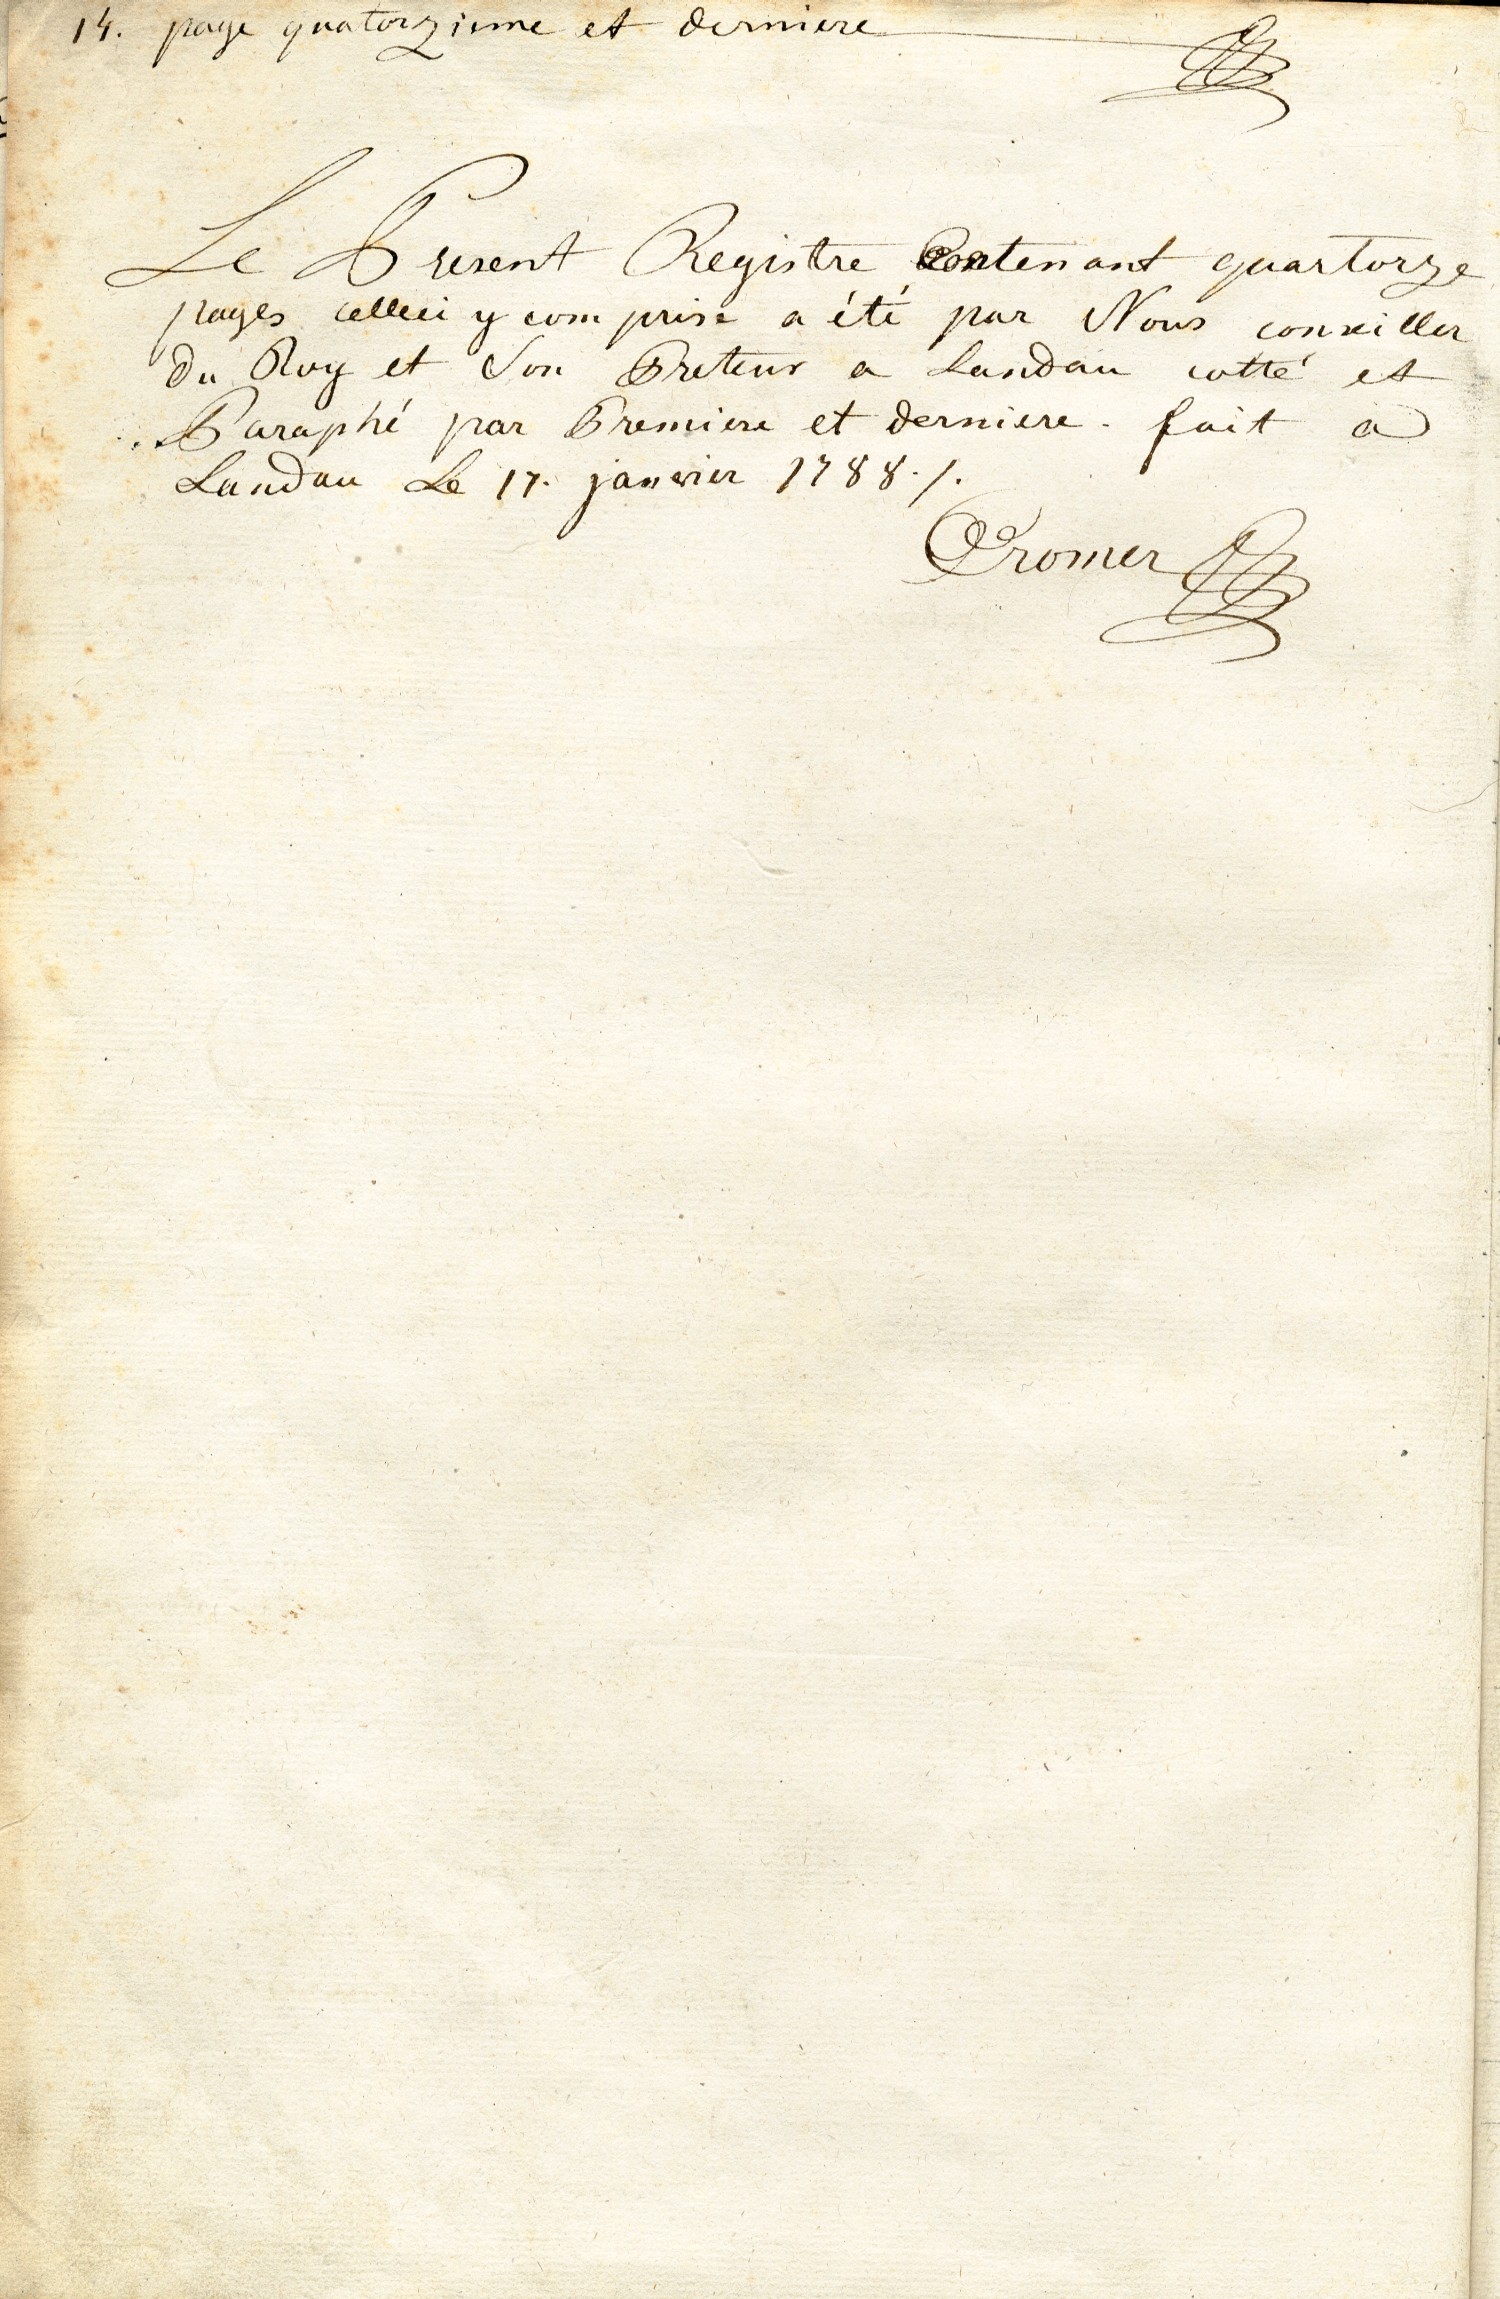 14. page quatorzieme et derniere
Le Present Registre Contenant quartorze
pages celleci y comprise a été par Nous conseiller
du Roy et Son Preteur a Landau cotté et
Paraphé par Premiere et derniere. fait a
Landau Le 17. janvier 1788./.
Cromer